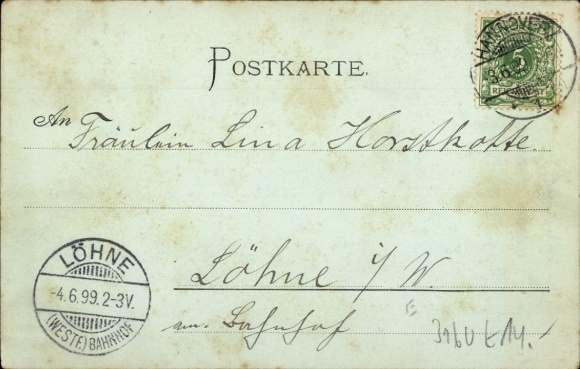 HANNOVER
5
REICHSPOST
POSTKARTE.
An Fräulein Lina Horstkotte.
Löhne i/W.
am Bahnhof
LÖHNE
-4.6.99.2-3V.
(WESTF.) BAHNHOF
E